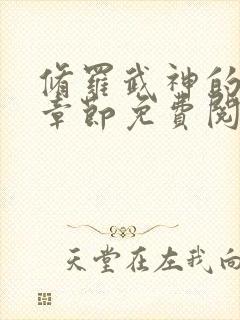 脩羅武神的
章節免費閱
天堂在左我向